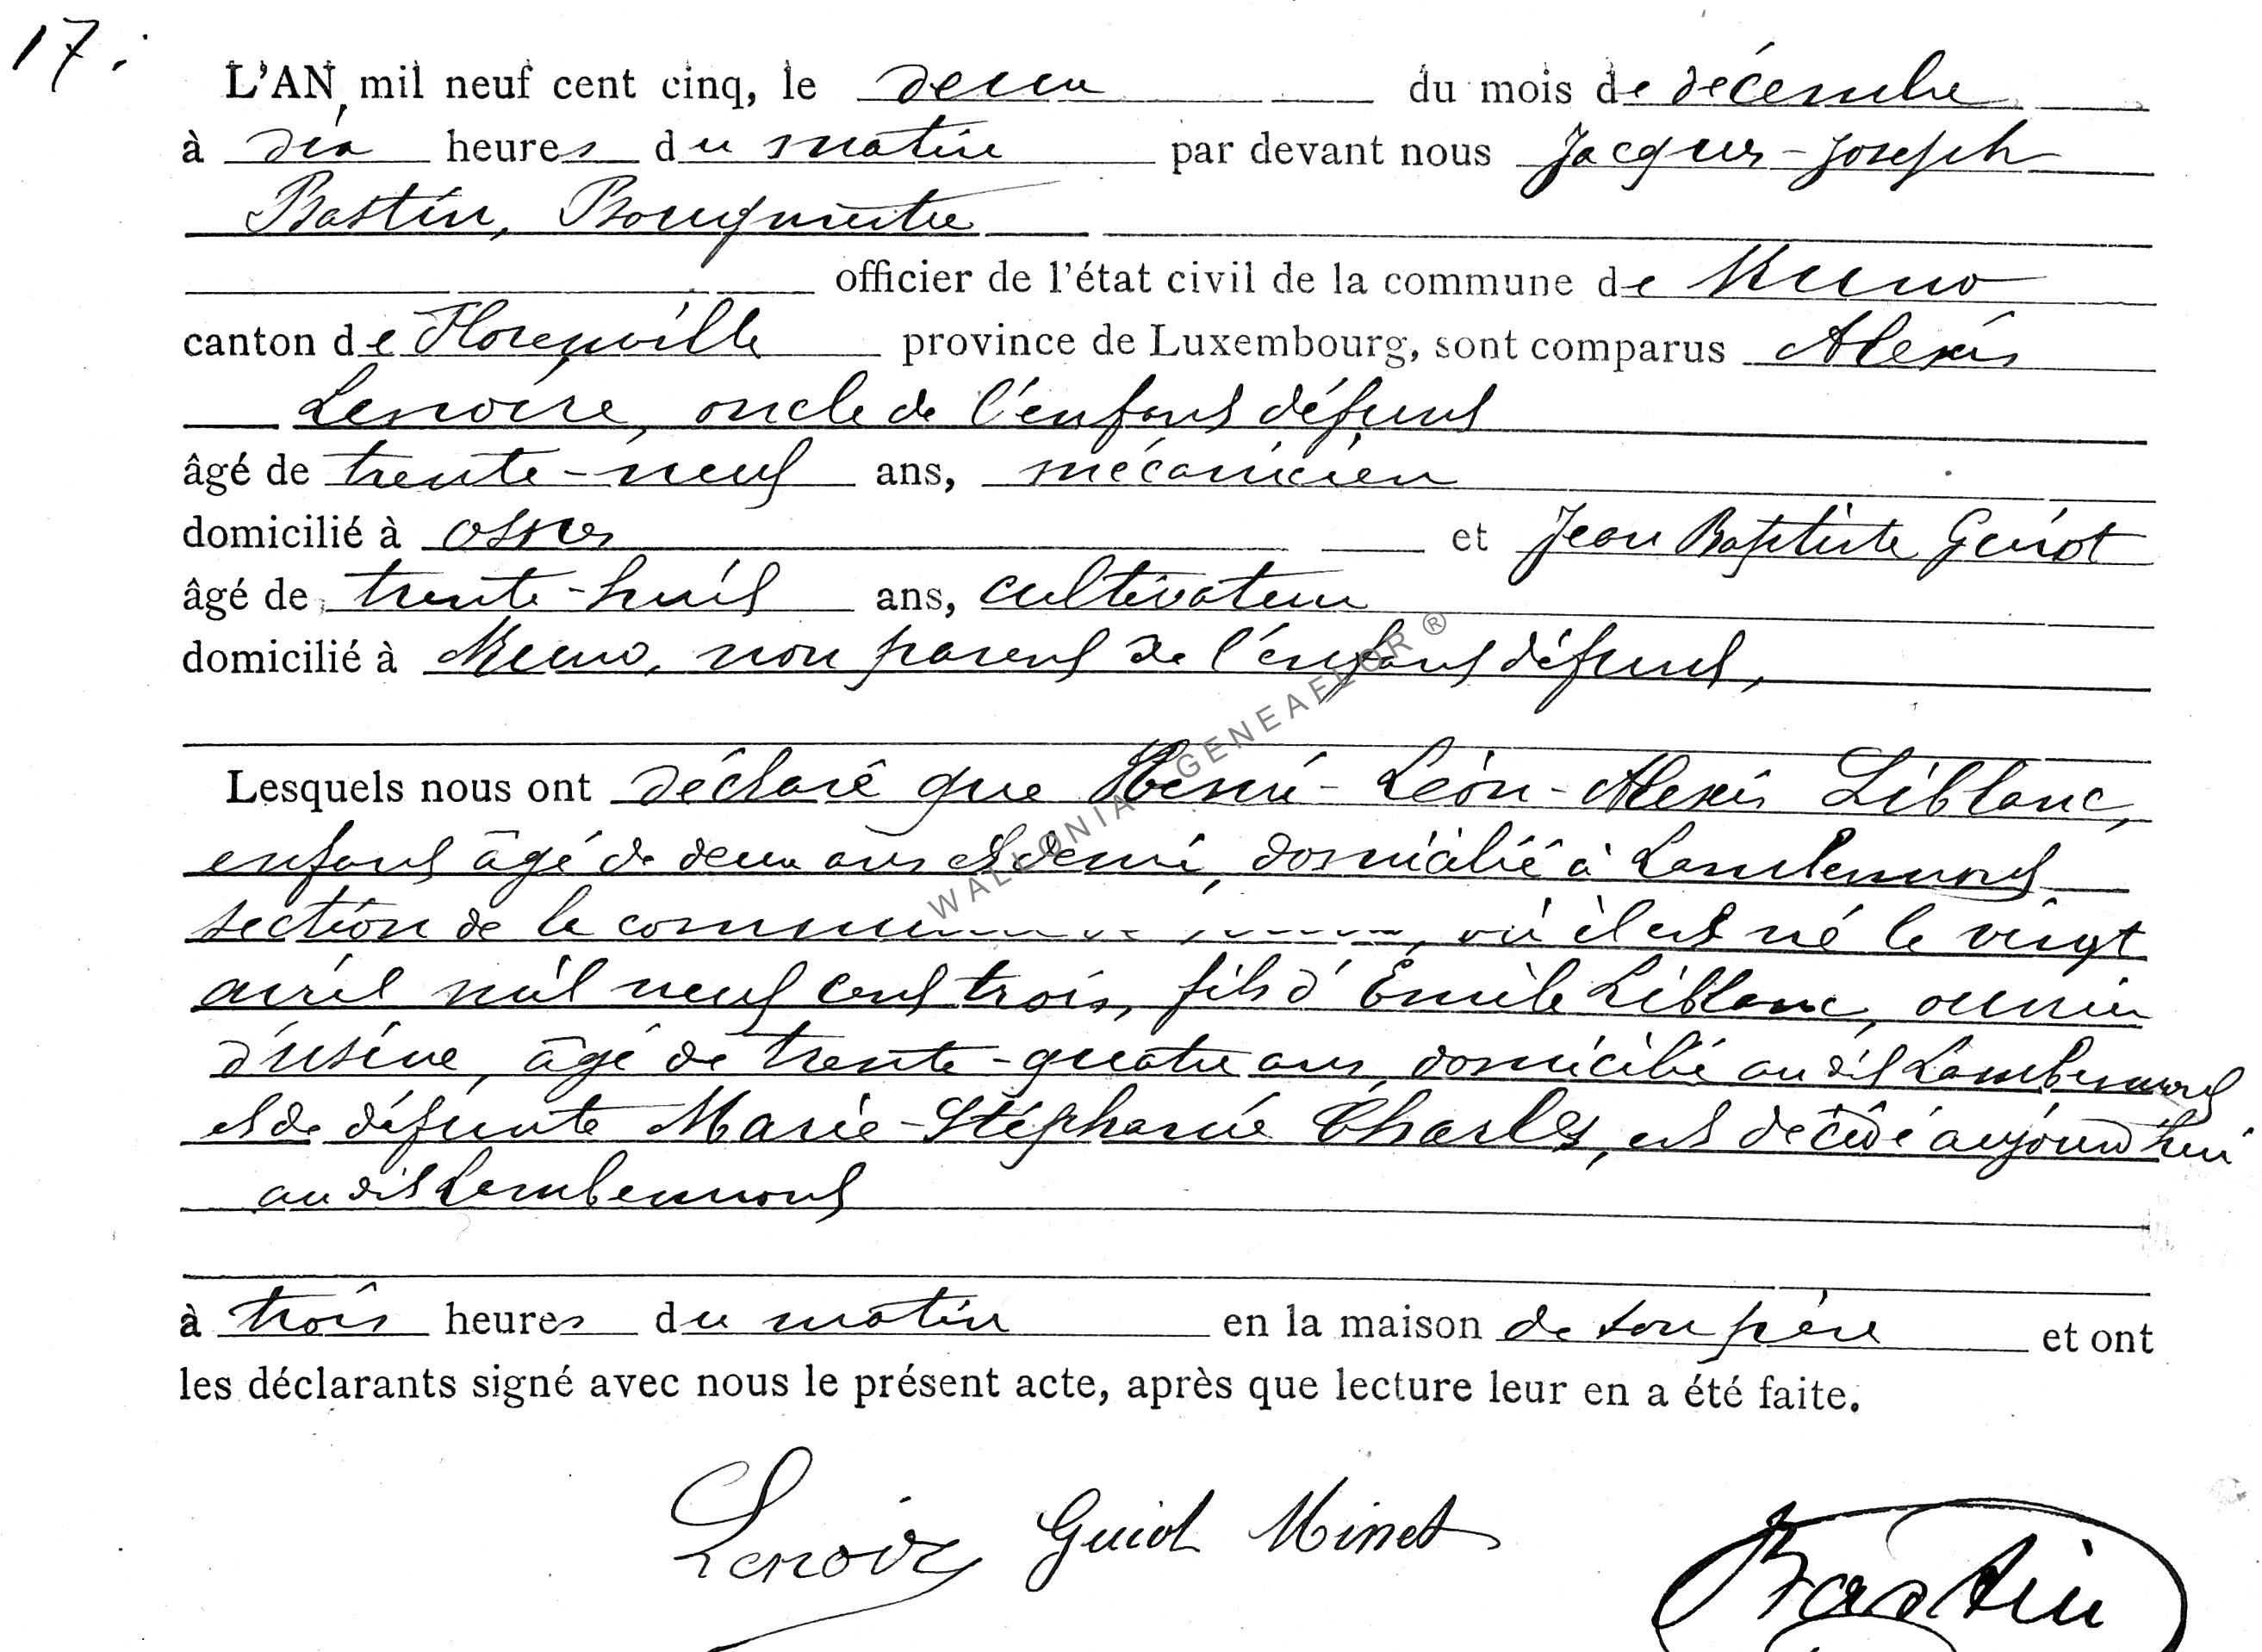 17.
L'AN mil neuf cent cinq, le deux du mois de décembre
à dix heures du matin par devant nous Jacques-Joseph
Bastin, Bourgmestre
officier de l'état civil de la commune de Muno
canton de Florenville province de Luxembourg, sont comparus Alexis
Lenoire, oncle de l'enfant défunt
âgé de trente-neuf ans, mécanicien
domicilié à Osnes et Jean Baptiste Guiot
âgé de trente-huit ans, cultivateur
domicilié à Muno, non parent de l'enfant défunt,
Lesquels nous ont déclaré que Henri-Léon-Alexis Liblanc,
enfant âgé de deux ans et demi, domicilié à Lambermont
section de la commune de, où il est né le vingt
avril mil neuf cent trois, fils d'Émile Liblanc, ouvrier
d'usine, âgé de trente-quatre ans, domicilié au dit Lambermont
et de défunte Marie-Stéphanie Charles, est décédé aujourd'hui
au dit Lambermont
à trois heures du matin en la maison de son père et ont
les déclarants signé avec nous le présent acte, après que lecture leur en a été faite.
Lenoire Guiot Minet Bastin
WALLONIA GENEAELOR ®